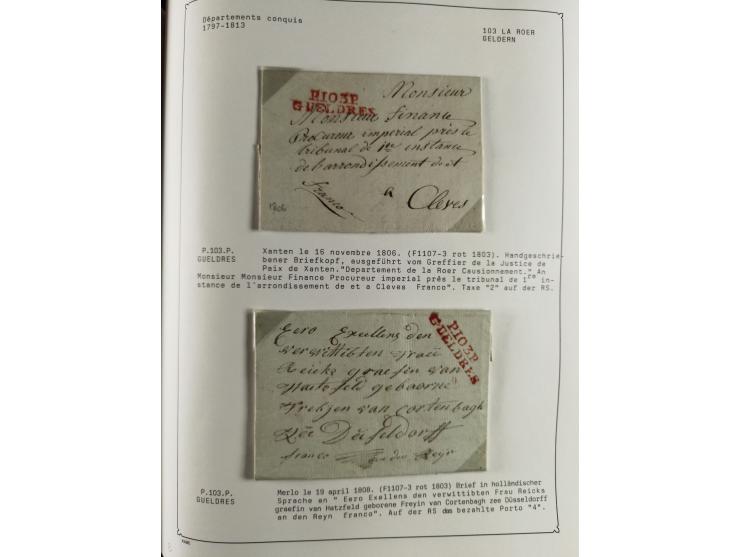 Départements conquis
1797-1813
103 LA ROER
GELDERN
P103P
GUELDRES
Monsieur
Monsieur Finance
Procureur imperial près le
tribunal de 1re instance
de l'arrondissement de et
a Cleves
franco
1806
P.103.P.
GUELDRES
Xanten le 16 novembre 1806. (F1107-3 rot 1803). Handgeschrie-
bener Briefkopf, ausgeführt vom Greffier de la Justice de
Paix de Xanten."Departement de la Roer Causionnement." An
Monsieur Monsieur Finance Procureur imperial prês le tribunal de 1re in-
stance de l'arrondissement de et a Cleves Franco". Taxe "2" auf der RS.
P103P
GUELDRES
Eero Exellens den
verwittibten
Reicks graefin van
Hatsfeld geboorne
Freÿen van Cortenbagh
Zée Düsseldorff
franco an den Reyn
P.103.P.
GUELDRES
Merlo le 19 april 1808. (F1107-3 rot 1803) Brief in holländischer
Sprache an " Eero Exallens den verwittibten Frau Reicks
graefin van Hatzfeld geborene Freyin van Cortenbagh zee Düsseldorff
an den Reyn franco". Auf der RS das bezahlte Porto "4".